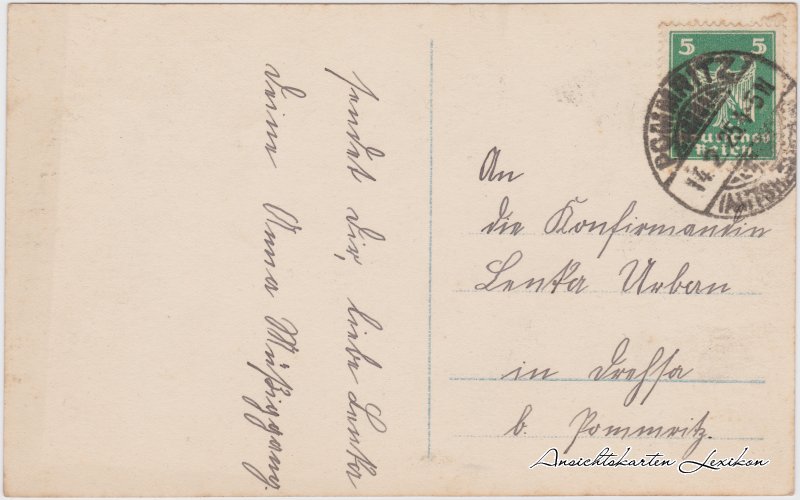 sendet dir, liebe Lenka
deine Anna Müßiggang.
5 5
Deutsches
Reich
POMMRITZ
14.2.25
An
die Konfirmandin
Lenka Urban
in Drehsa
b. Pommritz.
Ansichtskarten Lexikon